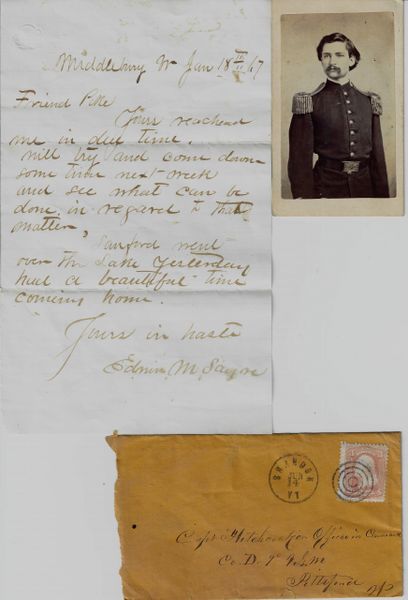 Middlebury Vt Jan 18th 67
Friend Pike
Yours reached
me in due time.
will try and come down
some time next week
and see what can be
done in regard to that
matter,
Sanford went
over the Lake yesterday
had a beautiful time
coming home.
Yours in haste
Edwin M Sayre
VT
Officer in
Co. D.
Pittsford